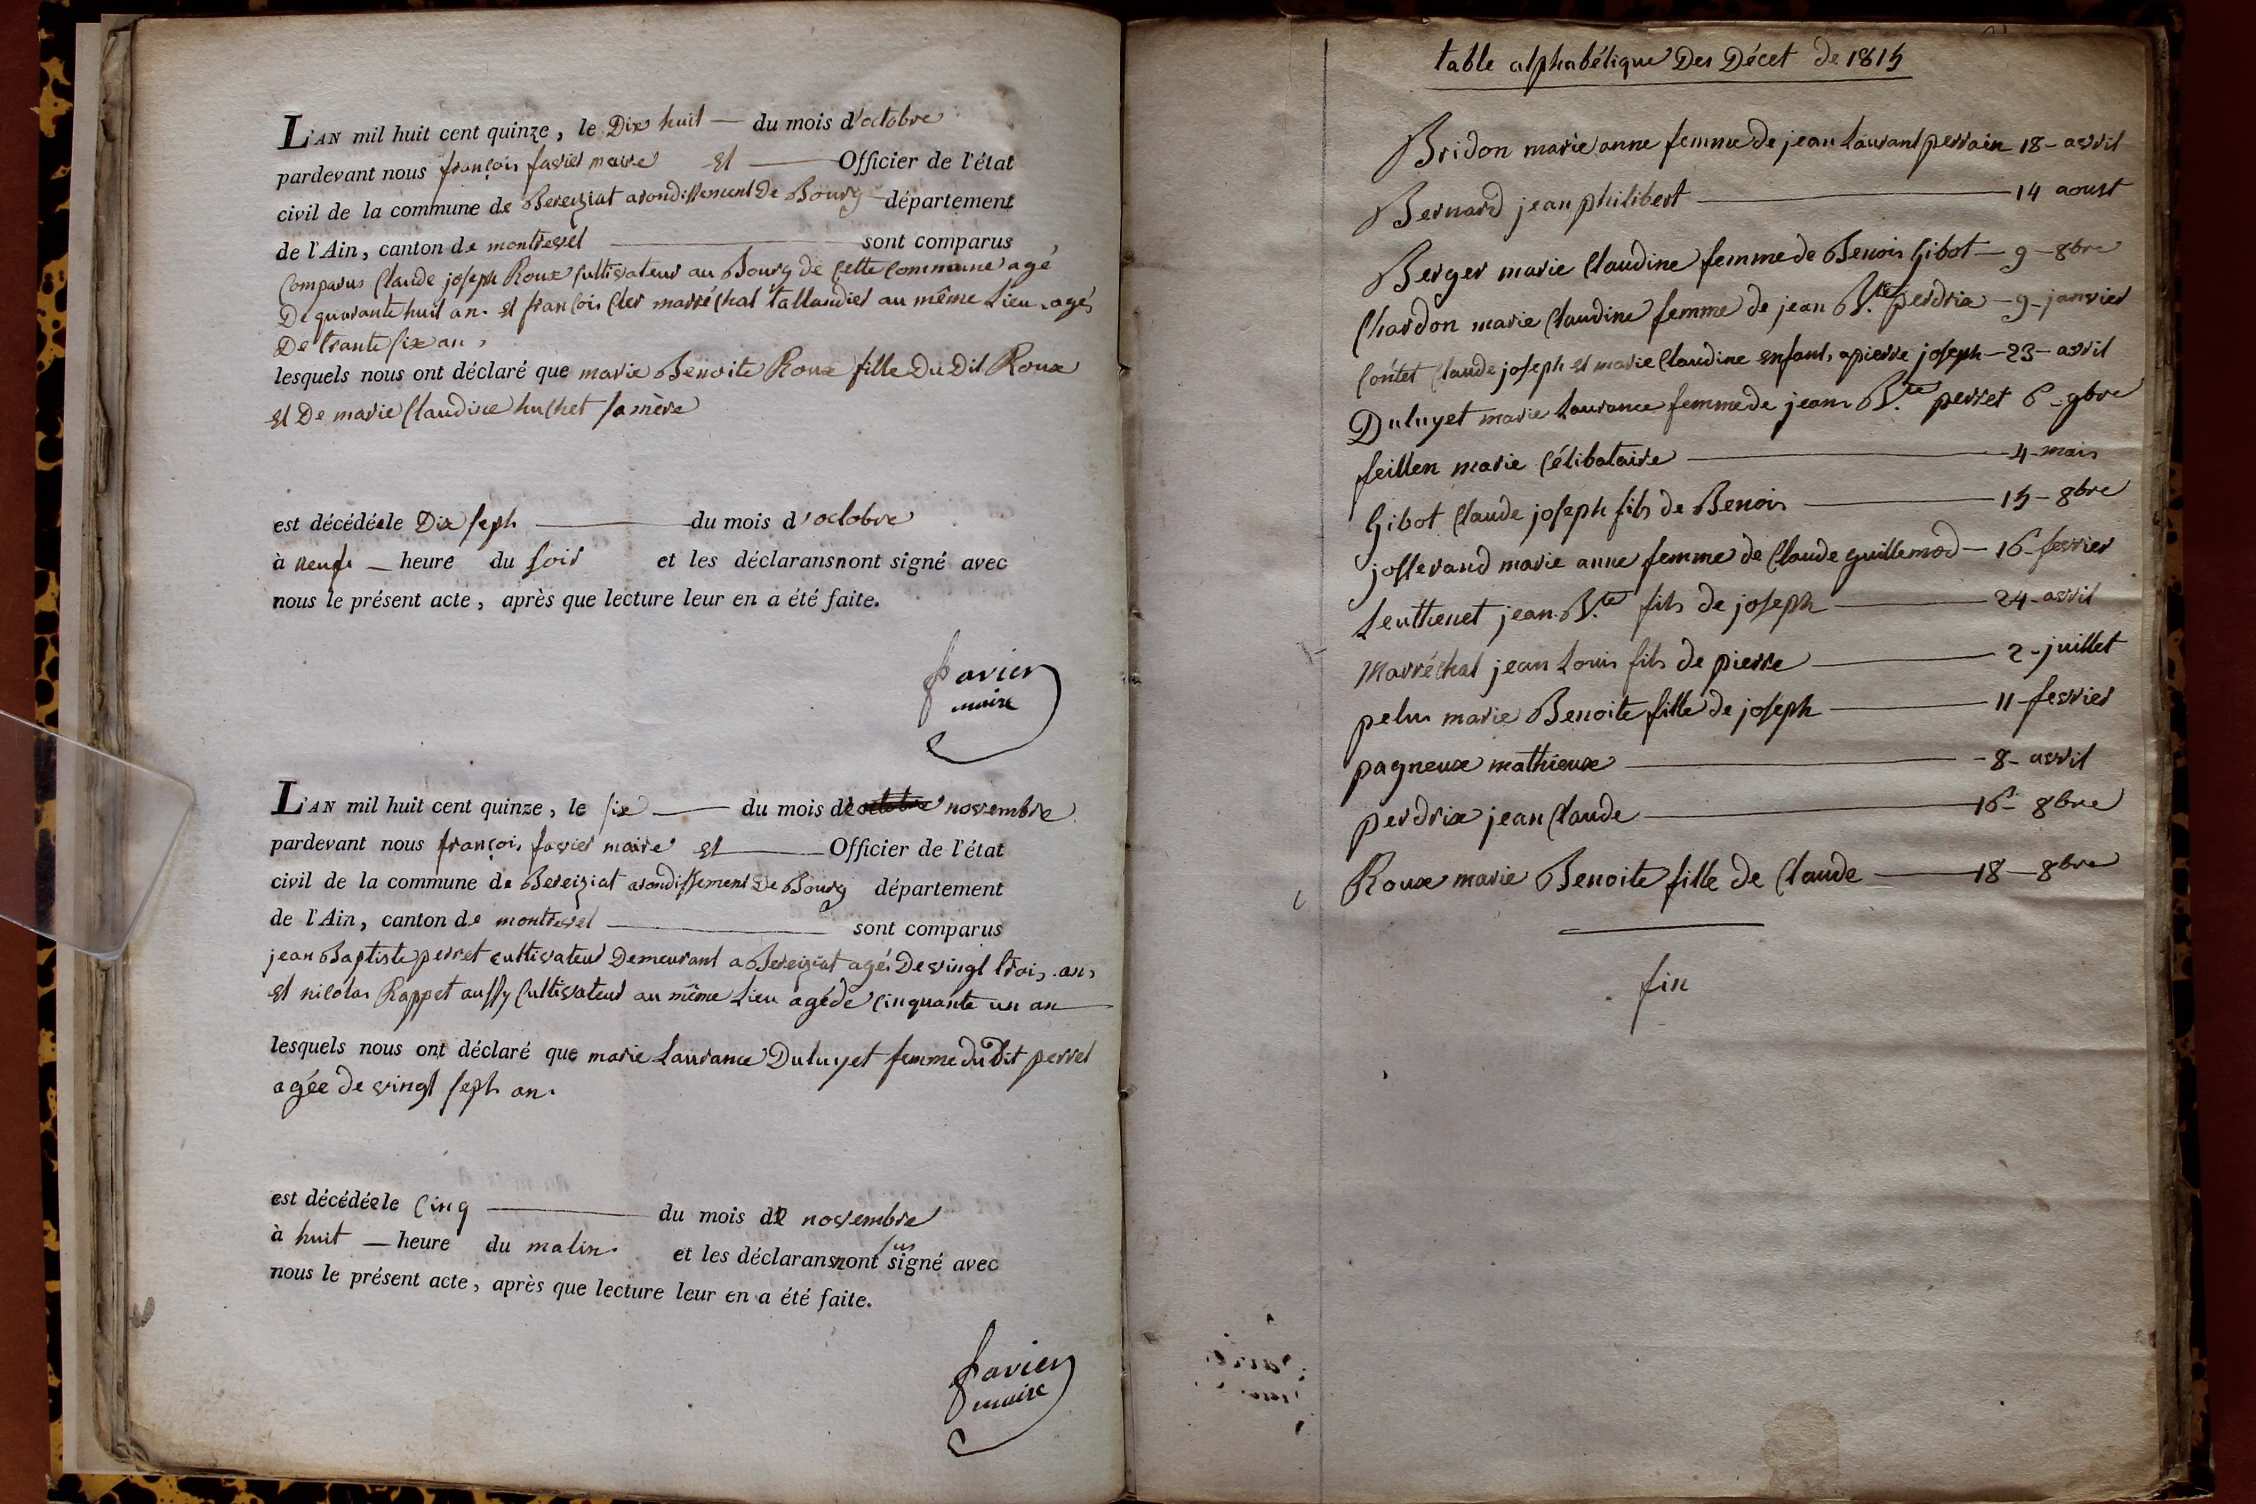 L'AN mil huit cent quinze, le Dix huit — du mois d'octobre
pardevant nous françois favier maire et — Officier de l'état
civil de la commune de Bereiziat arondissement De Bourg département
de l'Ain, canton de montrevel — sont comparus
Comparus Claude joseph Roux Cultivateur au Bourg de Cette Commune agé
De quarante huit an. et francois Cler marréchal tallandier au même Lieu agé
De trante six an,
lesquels nous ont déclaré que marie Benoite Roux fille Du Dit Roux
et De marie Claudine huchet sa mère
est décédée le Dix seph — du mois d'octobre
à neufs — heure du soir et les déclarans nont signé avec
nous le présent acte, après que lecture leur en a été faite.
favier
maire
L'AN mil huit cent quinze, le six — du mois de octobre novembre
pardevant nous françois favier maire et — Officier de l'état
civil de la commune de Bereiziat arondissement De Bourg département
de l'Ain, canton de montrevel — sont comparus
jean Baptiste perret cultivateur Demeurant a Bereiziat agés De vingt trois ans
et nicolas Rappet aussy Cultivateur au même Lieu agé de cinquante un an
lesquels nous ont déclaré que marie Laurance Duluyet femme du Dit perret
agée de vingt seph an.
est décédée le Cinq — du mois de novembre
à huit — heure du matin. et les déclarans nont sus signé avec
nous le présent acte, après que lecture leur en a été faite.
favier
maire
table alphabétique Des Décet de 1815
Bridon marie anne femme de jean Laurant perrain 18 - avril
Bernard jean philibert — 14 aoust
Berger marie Claudine femme de Benois Gibot — 9 — 8bre
Chardon marie Claudine femme de jean B.te perdrix — 9 - janvier
Contet Claude joseph et marie Claudine enfans a pierre joseph — 23 — avril
Duluyet marie Laurance femme de jean B.te perret 6 - 9bre
feillen marie Célibataire — 4 - mars
Gibot Claude joseph fils de Benois — 15 - 8bre
josserand marie anne femme de Claude guillemod — 16 - fevrier
Leuthenet jean B.te fils de joseph — 24 - avril
Marréchal jean Louis fils de pierre — 2 - juillet
pelus marie Benoite fille de joseph — 11 - fevrier
pagneux mathieux — 8 - avril
perdrix jean Claude — 16 - 8bre
Roux marie Benoite fille de Claude — 18 — 8bre
fin